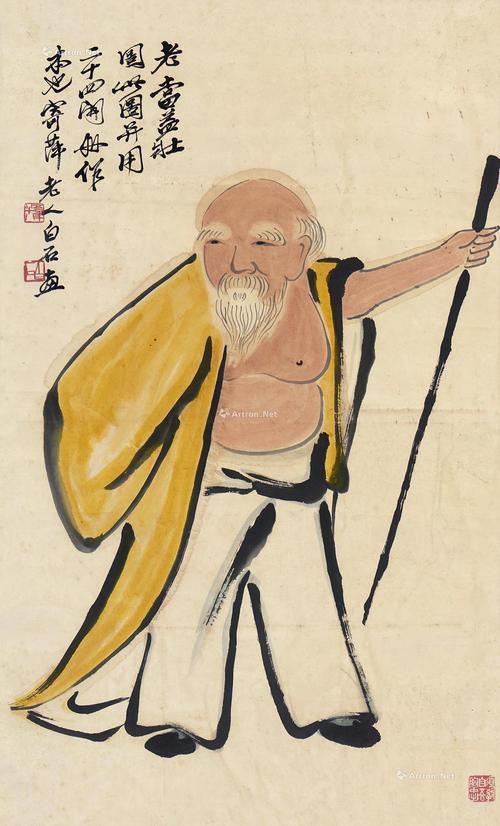 老當益壯
圖此圖并用
二十四開冊作
本也寄萍老人白石画
Artron.Net
Artron.Net
Artron.Net